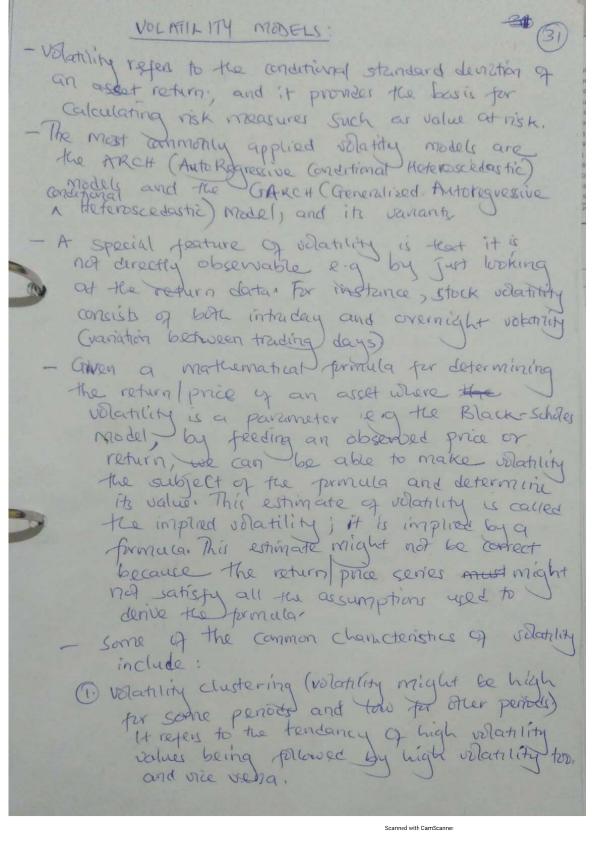 VOLATILITY MODELS:
31
- Volatility refers to the conditional standard deviation of
an asset return, and it provides the basis for
calculating risk measures such as value at risk.
- The most commonly applied volatity models are
the ARCH (AutoRegressive Conditional Heteroscedastic)
models and the GARCH (Generalised Autoregressive
conditional
^ Heteroscedastic) Model, and its variants
- A special feature of volatility is that it is
not directly observable e.g by just looking
at the return data. For instance, stock volatility
consists of both intraday and overnight volatility
(variation between trading days)
- Given a mathematical formula for determining
the return/price of an asset where the
volatility is a parameter e.g the Black-Scholes
Model, by feeding an observed price or
return, we can be able to make volatility
the subject of the formula and determine
its value. This estimate of volatility is called
the implied volatility; it is implied by a
formula. This estimate might not be correct
because the return/price series must might
not satisfy all the assumptions used to
derive the formula.
- Some of the common characteristics of volatility
include:
1. Volatility clustering (volatility might be high
for some periods and low for other periods)
It refers to the tendancy of high volatility
values being followed by high volatility too.
and vice versa.
Scanned with CamScanner